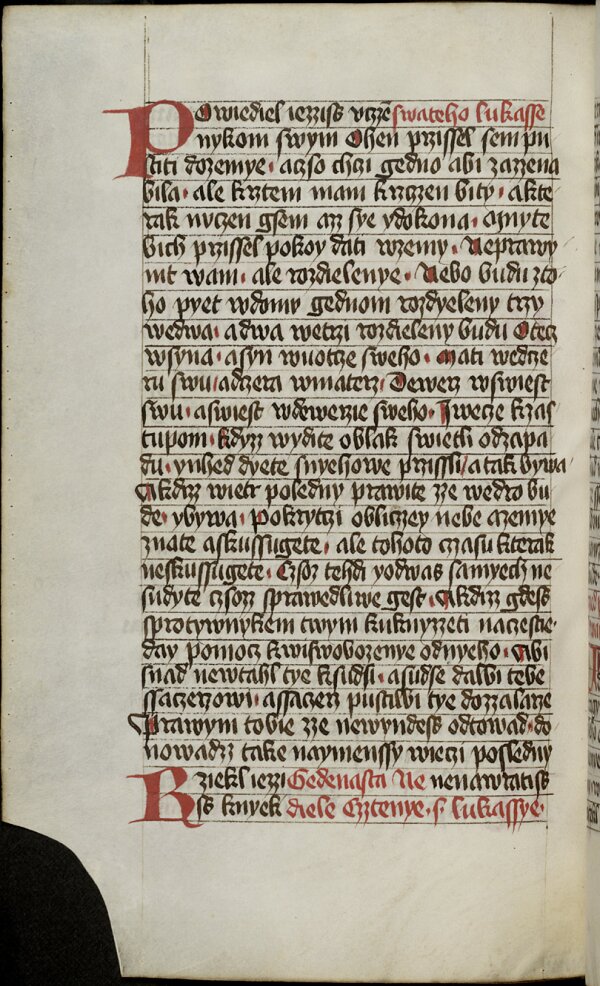 Powiediel iezziss vcze swateho lukasse
nykom swym Ohen przissel sem pu
stiti dozemye · aczso chczi gedno abi zazzena
bila · ale krztem mam krzczen biti · akte
rak nuczen gsem az sye ydokona · amyte
bich przissel pokoy dati wzemy · Neprawy
mt wam · ale rozdielenye · Nebo budu zto
ho pyet wdomu gednom rozdyeleny trzy
wedwa · a dwa wetrzi rozdieleny budu Otecz
wsyna · asyn wuotcze sweho · Mati wedcze
ru swu / adczera wmaterz · Dewerz wswiest
swu · aswiest wdewerzie sweho · I wecze kzas
tupom · kdyzz wydite oblak swiech odzapa
du · ynhed dyete snyehowe przissli / a tak bywa
Akdizz wietr poledny prawite zze wedro bu
de · ybywa · Pokrytczi obliczey nebe azemye
znate askussugete · ale tohoto czasu kterak
neskussugete · Czsoz tehdi yodwas samyech ne
sudyte czsozz sprawedliwe gest · Akdizz gdess
sprotywnykem twym kuknyzzeti naczestie ·
day pomocz kwiswobozenye odnyeho · Abi
snad newtahl tye ksudsi · asudse dalbi tebe
ssaczerzowi · assaczerz pustilbi tye dozzalarze
Prawym tobie zze newyndess odtowad · do
nowadzz take naymenssy wieczi posledny
Rziekl iezzi Gedenasta Ne nenawratiss
ss knyek diele Czztenye · s · lukassye ·